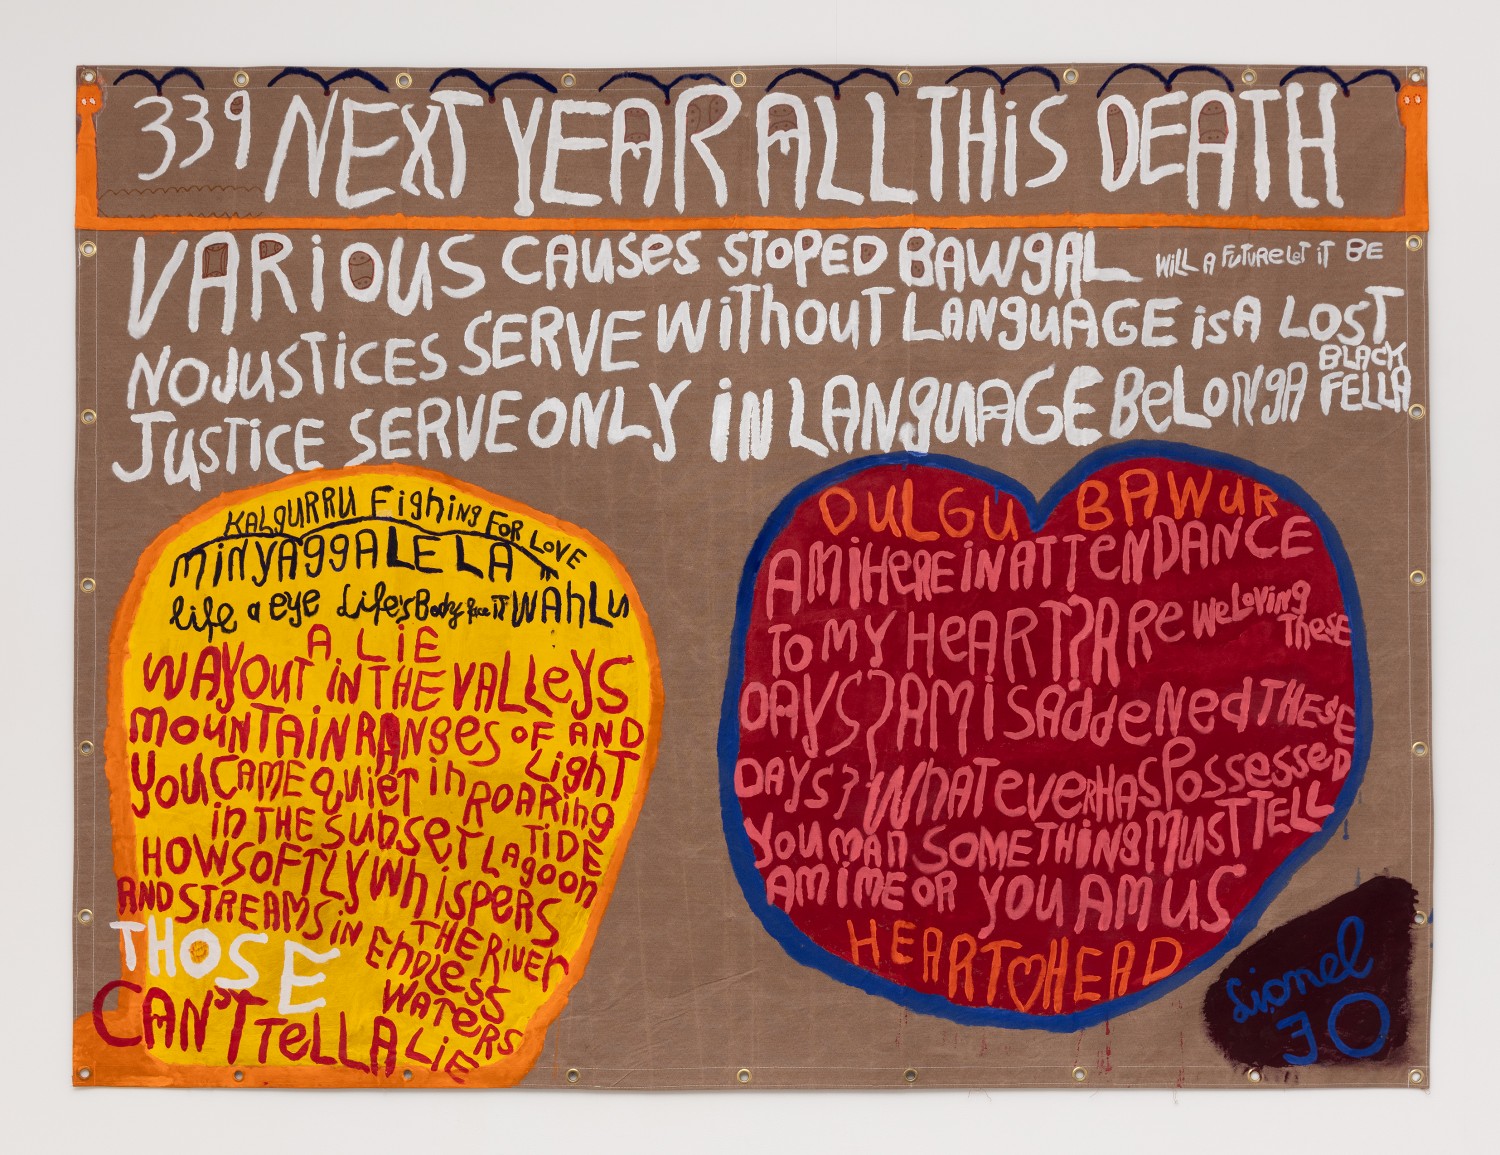 339 NEXT YEAR ALL THiS DEATH
VARiOUS CAUSes SToPED BAWgAL WiLL A FuTuRE LeT iT BE
NO JUSTiCES SERVE WiThOUT LANguAGE isA LOST
BLACK
JusTiCE SERVE ONLY iN LANguAGE BeLoNgA FELLA
KALgURRU FighiNg FOR LOVE
MiNYAggALELA
life a eye Life's Body face iT WAhLu
A LiE
WAYOUT iN THE VALLeYS
MOUNTAiN RANgES OF AND
LighT
YOU CAME quiET in ROARiNg
in THE SUNSET TiDE
LAgoon
HOW SOFTLY WhiSPERS
AND STREAMS iN THE RiVER
THOSE ENDLESS
WATERS
CAN'T TeLL A LiE
DULGU BAWUR
AM i HeRE iN ATTeNDANCE
TO MY HeART? ARe We LoViNg
TheSE
DAYS? AM i SAddeNed THESE
DAYS? WhATeVeR HAS PosSesseD
YOU MAN SOMETHiNg MUST TELL
AM i ME OR YOU AM US
HEART♡HEAD
Lionel
30